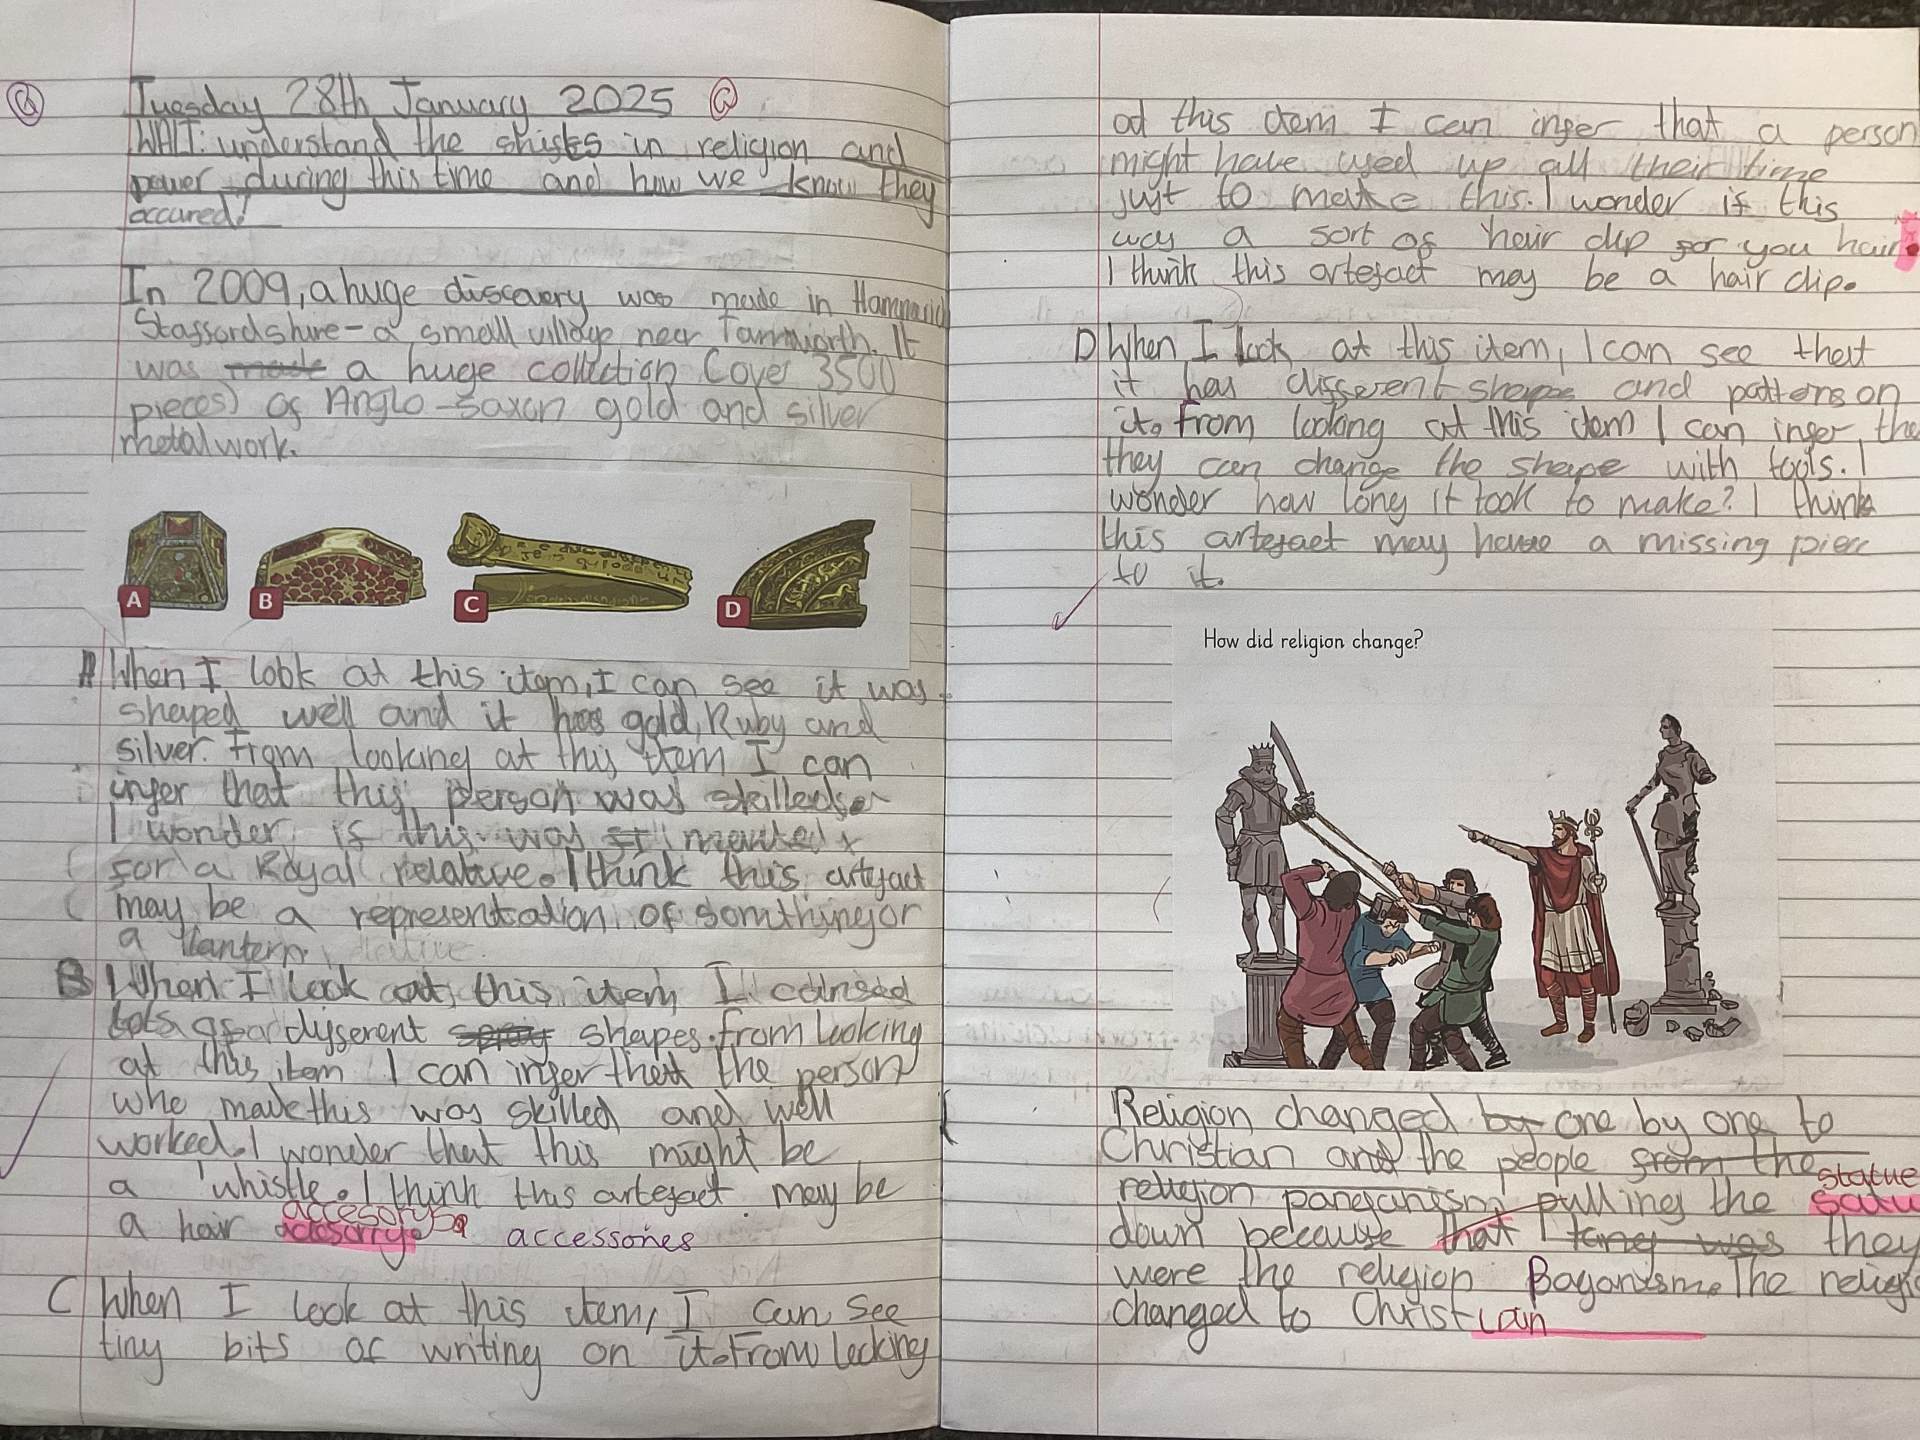 Tuesday 28th January 2025
WALT: understand the shifts in religion and
power during this time and how we know they
occured!
In 2009, a huge discovery was made in
Staffordshire - a small village near Tamworth. It
was made a huge collection (over 3500
pieces) of Anglo-Saxon gold and silver
metalwork.
A
B
C
D
A When I look at this item, I can see it was
shaped well and it has gold, Ruby and
silver. From looking at this item I can
infer that this person was skilled.
I wonder if this was
for a Royal relative. I think this artefact
may be a representation of somthing or
a lantern.
B When I look at this item, I
lots of different shapes. from looking
at this item I can infer that the person
who made this was skilled and well
worked. I wonder that this might be
a whistle. I think this artefact may be
accesorys
a hair accessories
C When I look at this item, I can see
tiny bits of writing on it. From looking
at this item I can infer that a person
might have used up all their time
just to make this. I wonder if this
was a sort of hair clip for you hair.
I think this artefact may be a hair clip.
D When I look at this item, I can see that
it has different shapes and patterns on
it. From looking at this item I can infer the
they can change the shape with tools. I
wonder how long it took to make? I think
this artefact may have a missing piece
to it.
How did religion change?
Religion changed by one by one to
Christian and the people from the
statue
religion panganism pulling the
down because that they
were the religion Paganism. The
changed to Christian